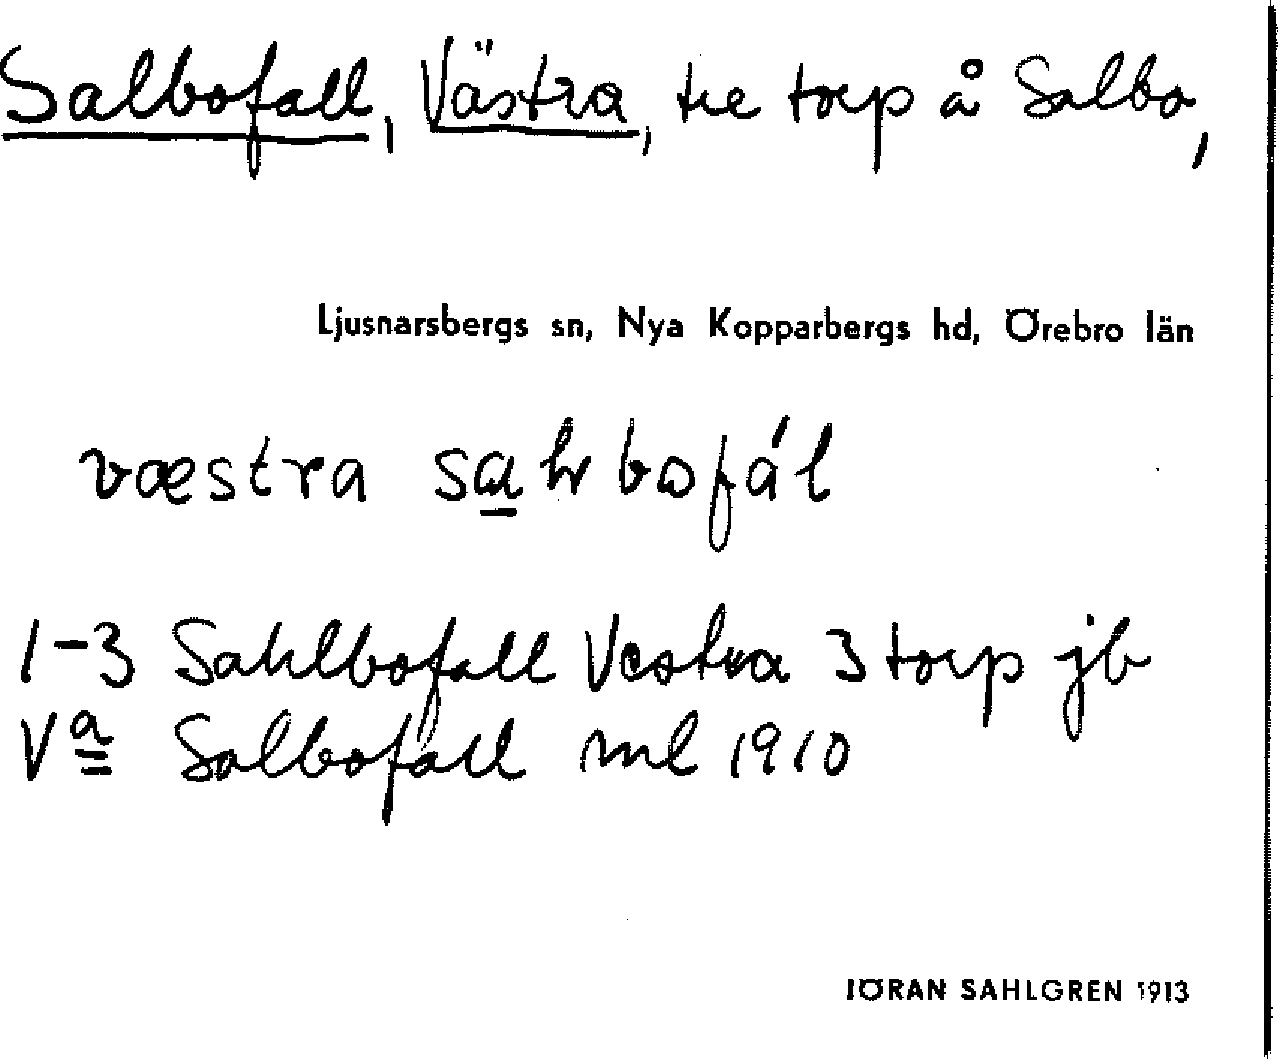 Salbofall, Västra, tre torp å Salbo,
Ljusnarsbergs sn, Nya Kopparbergs hd, Örebro län
væstra
1-3 Sahlbofall Vestra 3 torp jb
Va Salbofall ml 1910
JÖRAN SAHLGREN 1913